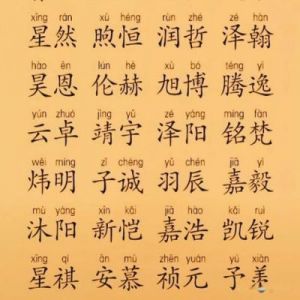 xīng rán xù héng rùn zhé zé hàn
星然 煦恒 润哲 泽翰
hào ēn lún hè xù bó téng yì
昊恩 伦赫 旭博 腾逸
yún zhuó jìng yǔ zé yáng míng fàn
云卓 靖宇 泽阳 铭梵
wěi míng zǐ chéng yǔ chén jiā yì
炜明 子诚 羽辰 嘉毅
mù yáng xīn kǎi jiā hào kǎi ruì
沐阳 新恺 嘉浩 凯锐
xīng qí ān mù zhēn yuán yǔ xiàn
星祺 安慕 祯元 予羡